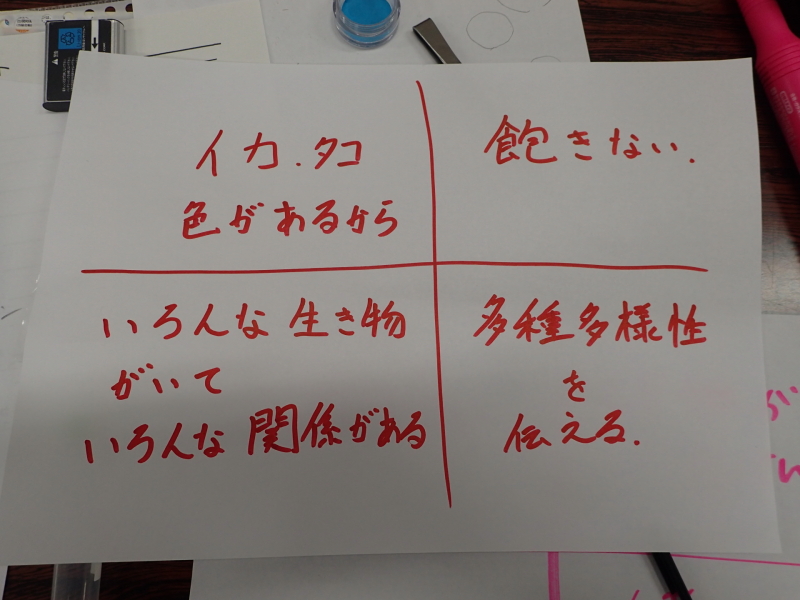 イカ.タコ
色があるから
飽きない.
いろんな生き物
がいて
いろんな関係がある
多種多様性
を
伝える.